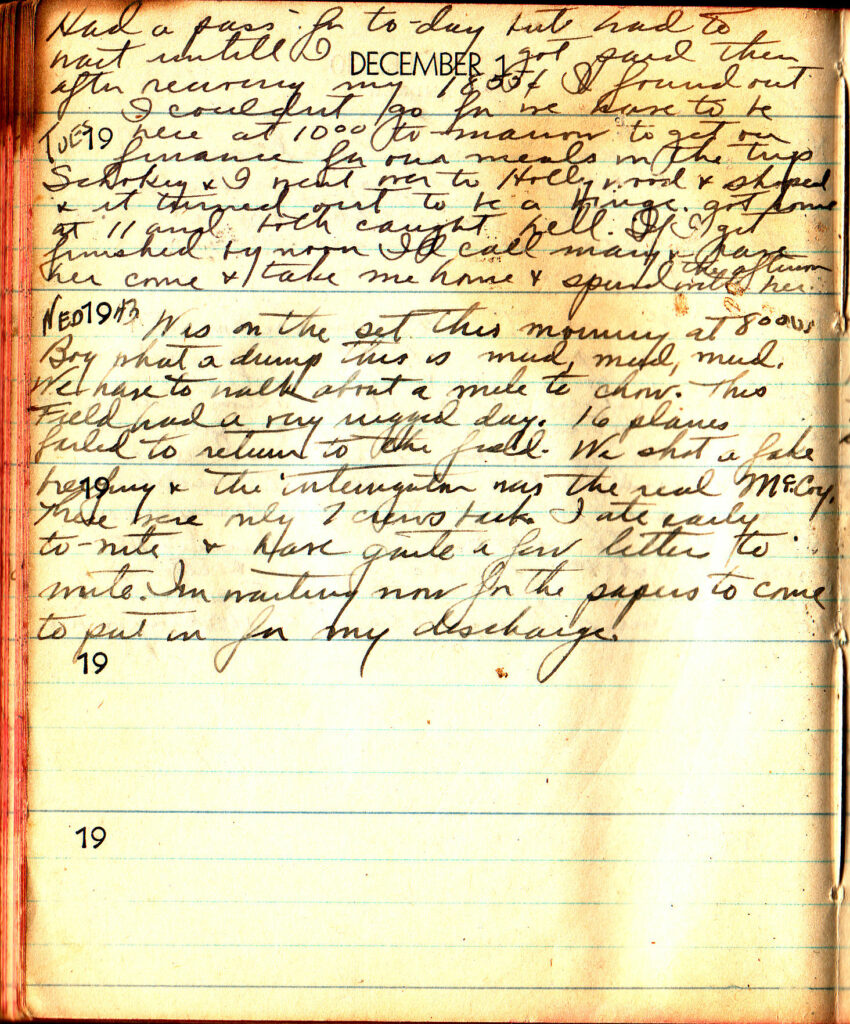 Had a pass for to-day but had to
wait untill I got paid then
DECEMBER 1
after receiving my I found out
I couldnt go for we have to be
TUES 19 here at 1000 to-morrow to get our
finance for our meals on the trip
& I went over to Hollywood &
& it turned out to be a binge. got home
at 11 and both caught hell. If I get
finished by noon I'll call mary & have
her come & take me home & spend the afternoon with her.
WED 1943 Was on the set this morning at 800
Boy what a dump this is mud, mud, mud.
We have to walk about a mile to chow. This
Field had a very rugged day. 16 planes
failed to return to the field. We shot a fake
19 & the interrogation was the real McCoy.
There were only 7 crews back. I ate early
to-nite & have quite a few letters to
write. Im waiting now for the papers to come
to put in for my discharge.
19
19